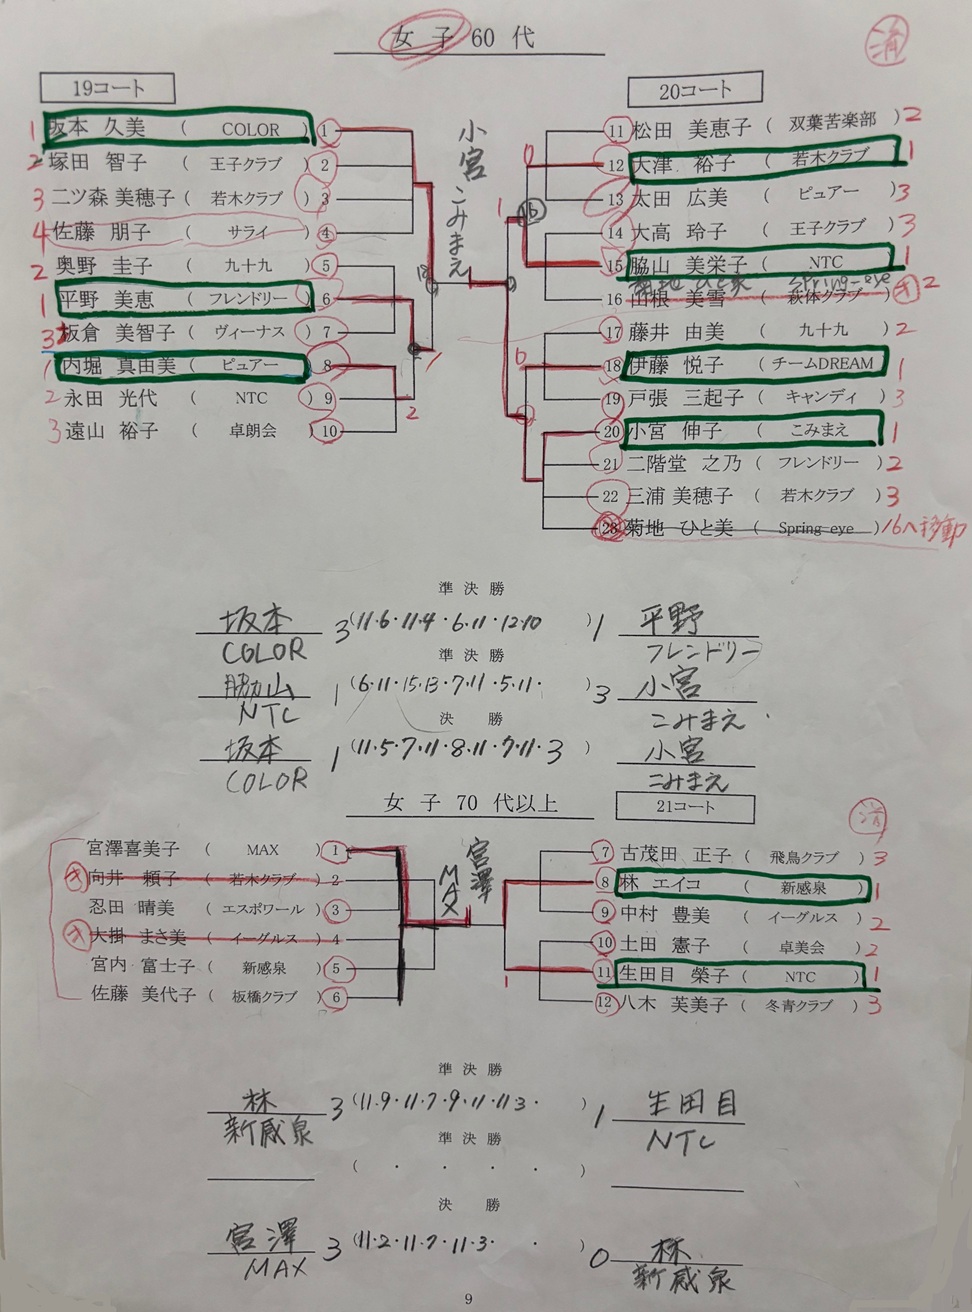 女子 60代
済
19コート
20コート
1 坂本 久美 ( COLOR ) 1
2 塚田 智子 ( 王子クラブ ) 2
3 二ツ森 美穂子 ( 若木クラブ ) 3
4 佐藤 朋子 ( サライ ) 4
2 奥野 圭子 ( 九十九 ) 5
1 平野 美恵 ( フレンドリー ) 6
3 板倉 美智子 ( ヴィーナス ) 7
1 内堀 真由美 ( ピュアー ) 8
2 永田 光代 ( NTC ) 9
3 遠山 裕子 ( 卓朗会 ) 10
小宮 こみまえ
11 松田 美恵子 ( 双葉苦楽部 ) 2
12 大津 裕子 ( 若木クラブ ) 1
13 太田 広美 ( ピュアー ) 3
14 大高 玲子 ( 王子クラブ ) 3
15 脇山 美栄子 ( NTC ) 1
菊地 ひと美 Spring-eye
16 山根 美雪 ( 萩体クラブ ) 2
17 藤井 由美 ( 九十九 ) 2
18 伊藤 悦子 ( チームDREAM ) 1
19 戸張 三起子 ( キャンディ ) 3
20 小宮 伸子 ( こみまえ ) 1
21 二階堂 之乃 ( フレンドリー ) 2
22 三浦 美穂子 ( 若木クラブ ) 3
23 菊地 ひと美 ( Spring-eye ) 16へ移動
準決勝
坂本 3 (11・6・11・4・6・11・12・10 ) 1 平野
COLOR フレンドリー
準決勝
脇山 1 (6・11・15・13・7・11・5・11・ ) 3 小宮
NTC こみまえ
決勝
坂本 1 (11・5・7・11・8・11・7・11 3 ) 小宮
COLOR こみまえ
女子 70代以上
21コート
済
宮澤喜美子 ( MAX ) 1
キ 向井 頼子 ( 若木クラブ ) 2
忍田 晴美 ( エスポワール ) 3
キ 大掛 まさ美 ( イーグルス ) 4
宮内 富士子 ( 新感泉 ) 5
佐藤 美代子 ( 板橋クラブ ) 6
宮澤 MAX
7 古茂田 正子 ( 飛鳥クラブ ) 3
8 林 エイコ ( 新感泉 ) 1
9 中村 豊美 ( イーグルス ) 2
10 土田 憲子 ( 卓美会 ) 2
11 生田目 榮子 ( NTC ) 1
12 八木 芙美子 ( 冬青クラブ ) 3
準決勝
林 3 (11・9・11・7・9・11・11 3・ ) 1 生田目
新感泉 NTC
準決勝
( ・ ・ ・ ・ )
決勝
宮澤 3 (11・2・11・7・11・3・ ・ ) 0 林
MAX 新感泉
9